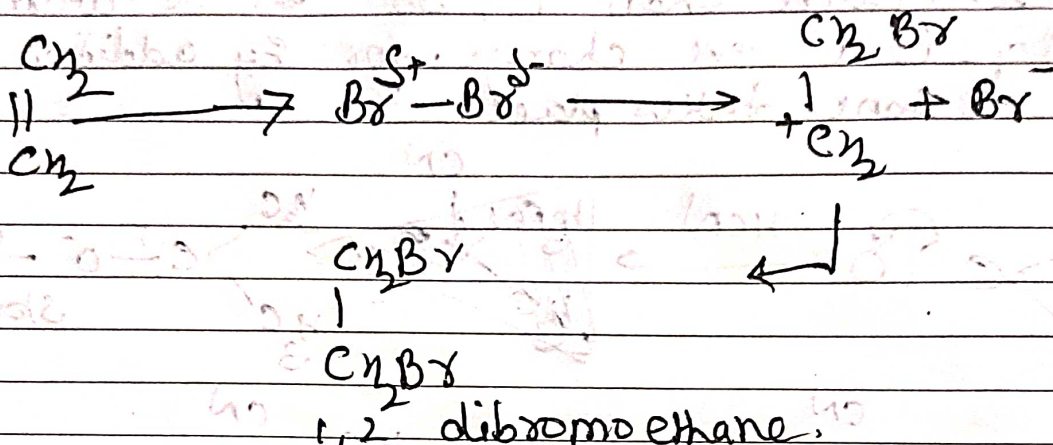 CH2 CH2Br
|| ⟶ Brδ+ — Brδ- ⟶ | + Br-
CH2 +CH2
CH2Br
|
CH2Br
1,2. dibromo ethane.